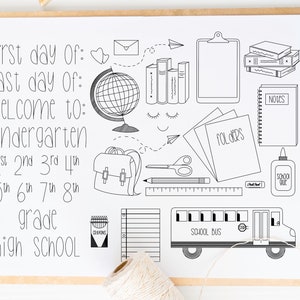 first day of:
last day of:
welcome to:
kindergarten
1st 2nd 3rd 4th
5th 6th 7th 8th
grade
high school
NOTES
FOLDERS
SCHOOL GLUE
CRAYONS
SCHOOL BUS